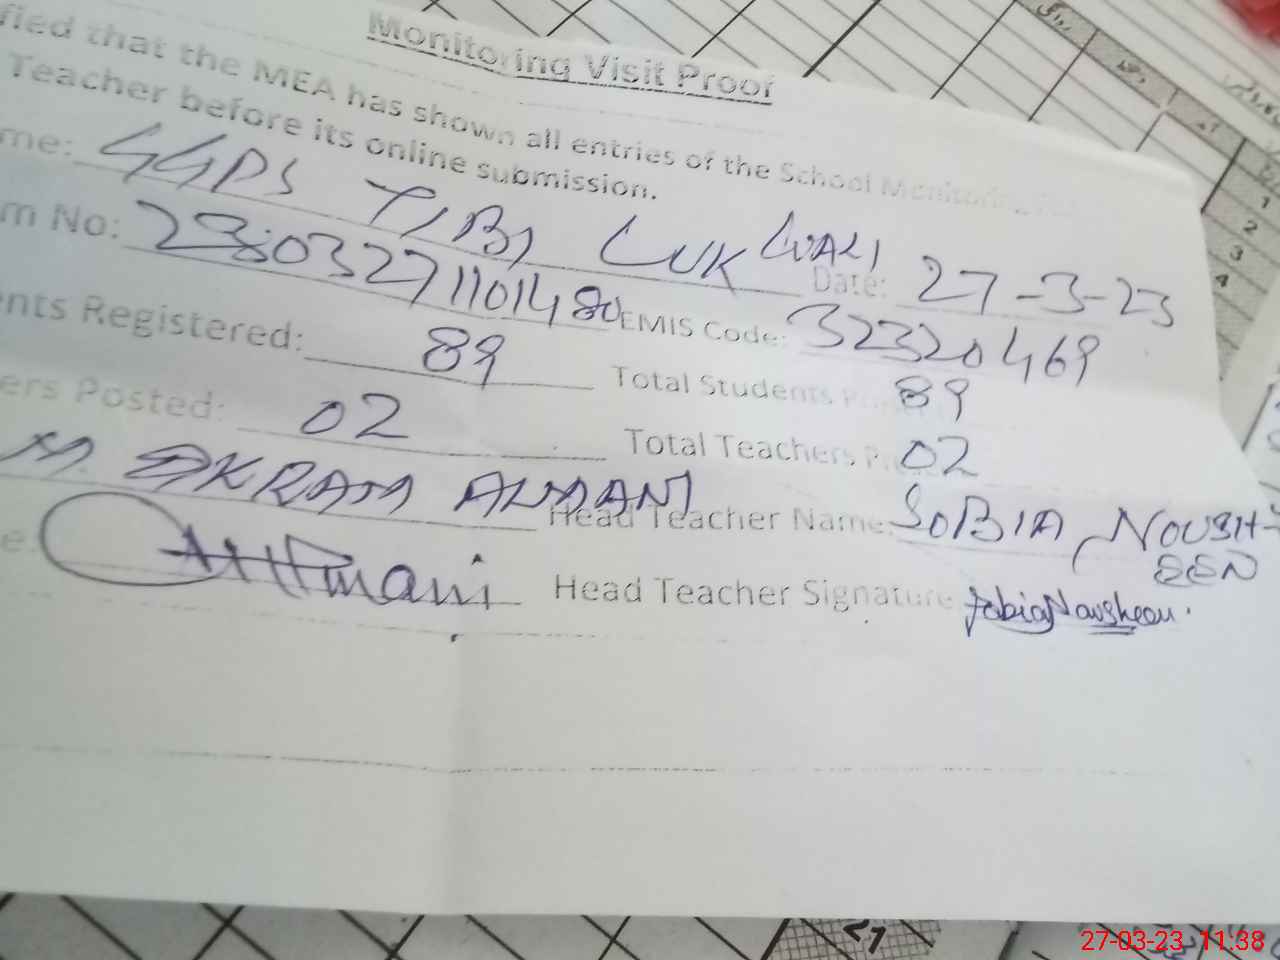 Monitoring Visit Proof
fied that the MEA has shown all entries of the School Monitoring
Teacher before its online submission.
me: GGPS TIBI LUK WALI Date: 27-3-23
m No: EMIS Code: 32320469
nts Registered: 89 Total Students 89
ers Posted: 02 Total Teachers 02
M. AKRAM Head Teacher Name: SOBIA NOUSH-
EEN
e: Head Teacher Signature Sobia Nousheen.
1
2
3
4
27
27-03-23 11:38